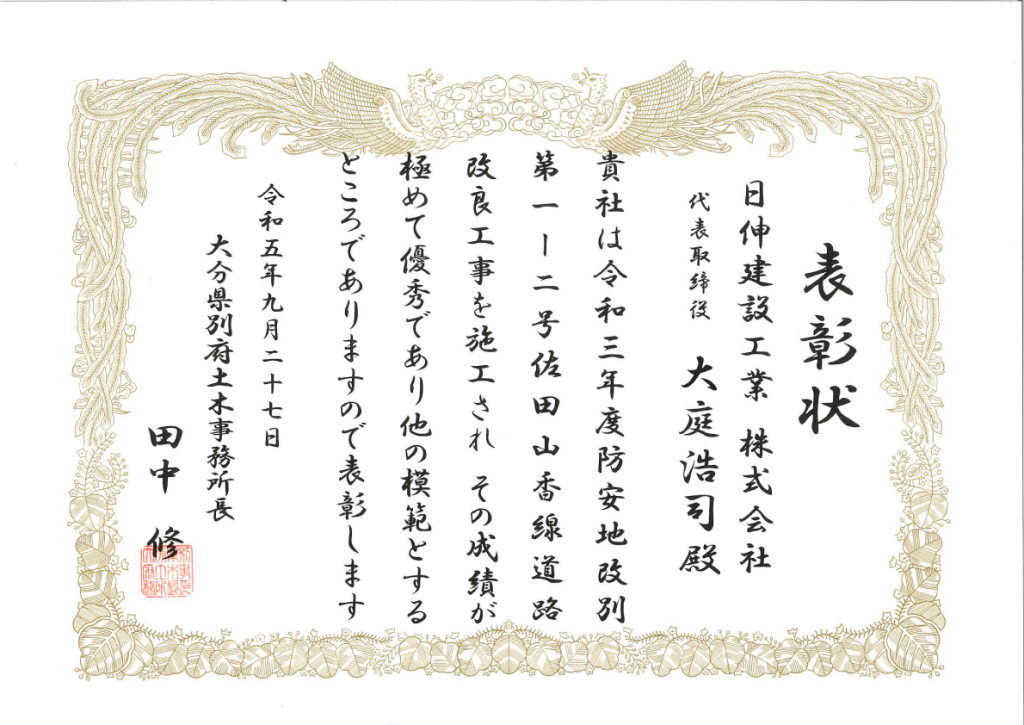 表彰状
日伸建設工業 株式会社
代表取締役 大庭浩司殿
貴社は令和三年度防安地改別
第一ー二号佐田山香線道路
改良工事を施工され その成績が
極めて優秀であり他の模範とする
ところでありますので表彰します
令和五年九月二十七日
大分県別府土木事務所長
田中 修